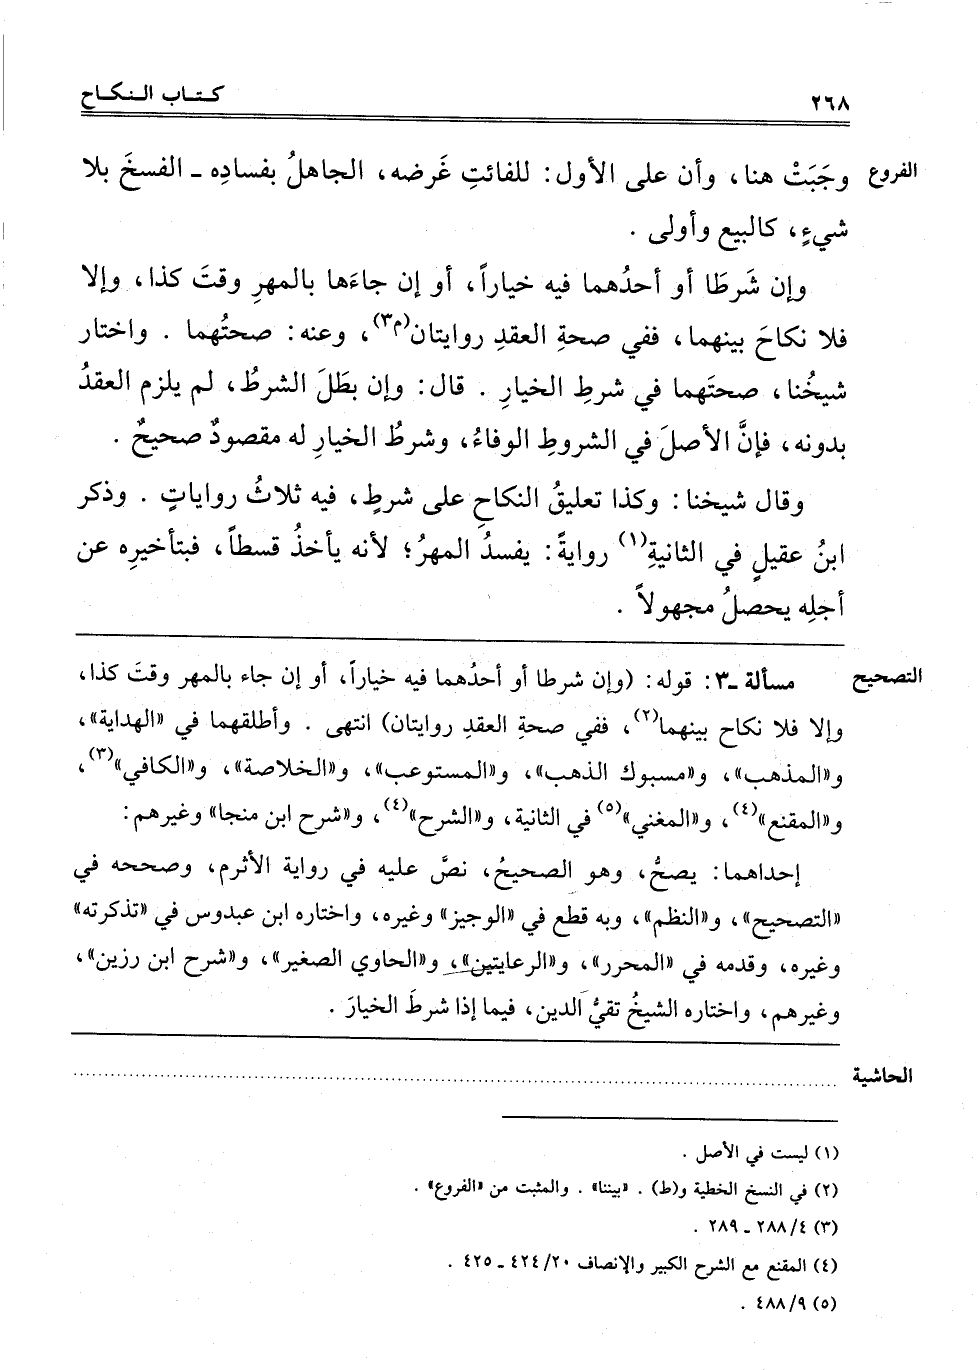 ٢٦٨ كتاب النكاح
الفروع وجَبَتْ هنا، وأن على الأول: للفائتِ غَرضه، الجاهلُ بفسادِه ـ الفسخَ بلا
شيءٍ، كالبيع وأولى .
وإن شَرطَا أو أحدُهما فيه خياراً، أو إن جاءَها بالمهرِ وقتَ كذا، وإلا
فلا نكاحَ بينهما، ففي صحةِ العقدِ روايتان(م٣)، وعنه: صحتُهما . واختار
شيخُنا، صحتَهما في شرطِ الخيارِ . قال: وإن بطَلَ الشرطُ، لم يلزم العقدُ
بدونه، فإنَّ الأصلَ في الشروطِ الوفاءُ، وشرطُ الخيارِ له مقصودٌ صحيحٌ .
وقال شيخنا: وكذا تعليقُ النكاحِ على شرطٍ، فيه ثلاثُ رواياتٍ . وذكر
ابنُ عقيلٍ في الثانيةِ(١) روايةً: يفسدُ المهرُ؛ لأنه يأخذُ قسطاً، فبتأخيرِه عن
أجلِه يحصلُ مجهولاً .
التصحيح مسألة ـ٣: قوله: (وإن شرطا أو أحدُهما فيه خياراً، أو إن جاء بالمهر وقتَ كذا،
وإلا فلا نكاح بينهما(٢)، ففي صحة العقدِ روايتان) انتهى . وأطلقهما في «الهداية»،
و«المذهب»، و«مسبوك الذهب»، و«المستوعب»، و«الخلاصة»، و«الكافي»(٣)،
و«المقنع»(٤)، و«المغني»(٥) في الثانية، و«الشرح»(٤)، و«شرح ابن منجا» وغيرهم:
إحداهما: يصحُّ، وهو الصحيحُ، نصَّ عليه في رواية الأثرم، وصححه في
«التصحيح»، و«النظم»، وبه قطع في «الوجيز» وغيره، واختاره ابن عبدوس في «تذكرته»
وغيره، وقدمه في «المحرر»، و«الرعايتين»، و«الحاوي الصغير»، و«شرح ابن رزين»،
وغيرهم، واختاره الشيخُ تقيُّ الدين، فيما إذا شرطَ الخيارَ .
الحاشية ................................................................
(١) ليست في الأصل .
(٢) في النسخ الخطية و(ط) . «بيننا» . والمثبت من «الفروع» .
(٣) ٤/ ٢٨٨ ـ ٢٨٩ .
(٤) المقنع مع الشرح الكبير والإنصاف ٢٠/ ٤٢٤ ـ ٤٢٥ .
(٥) ٩/ ٤٨٨ .